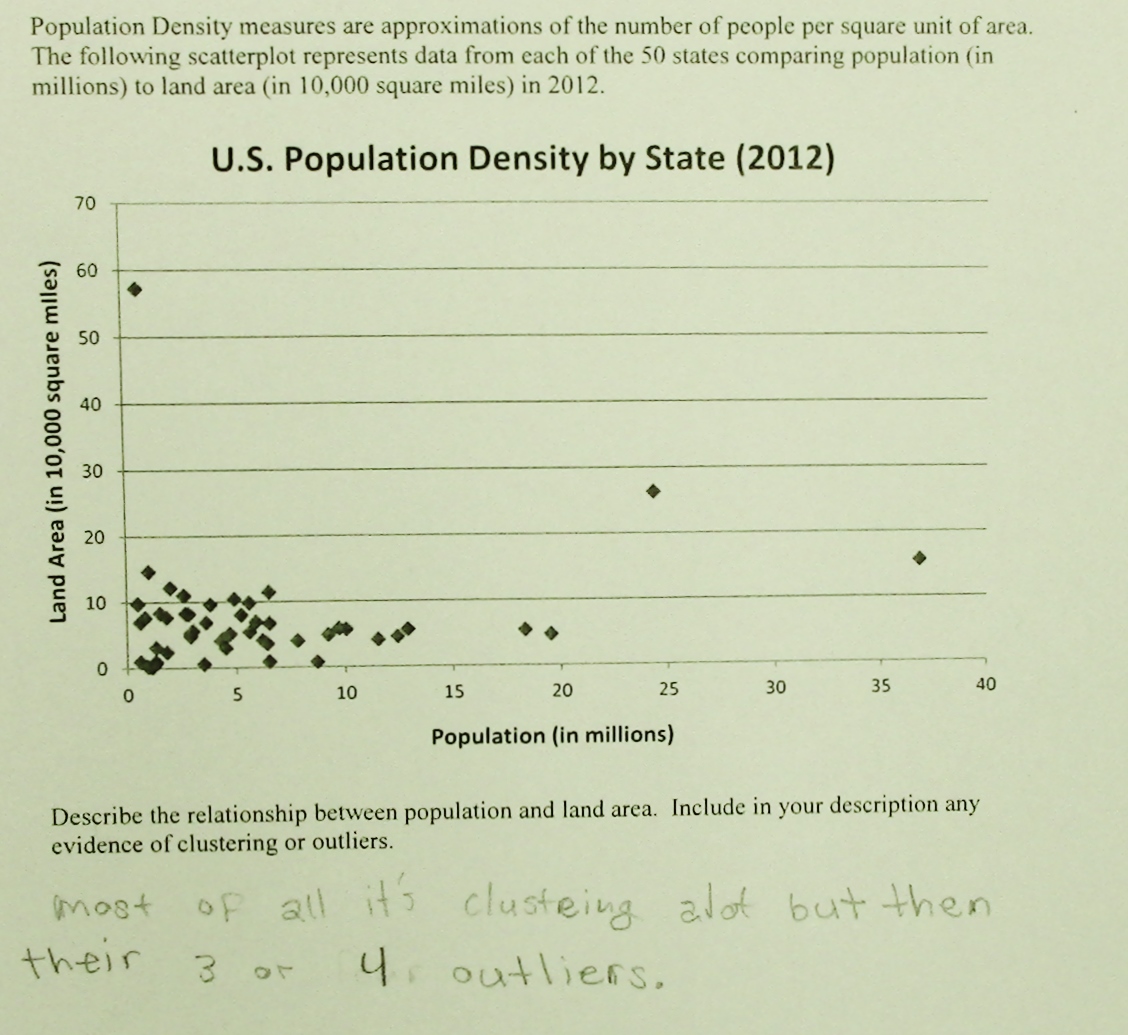 Population Density measures are approximations of the number of people per square unit of area.
The following scatterplot represents data from each of the 50 states comparing population (in
millions) to land area (in 10,000 square miles) in 2012.
U.S. Population Density by State (2012)
Land Area (in 10,000 square miles)
70
60
50
40
30
20
10
0
0 5 10 15 20 25 30 35 40
Population (in millions)
Describe the relationship between population and land area. Include in your description any
evidence of clustering or outliers.
most of all it's clusteing alot but then
their 3 or 4 outliers.